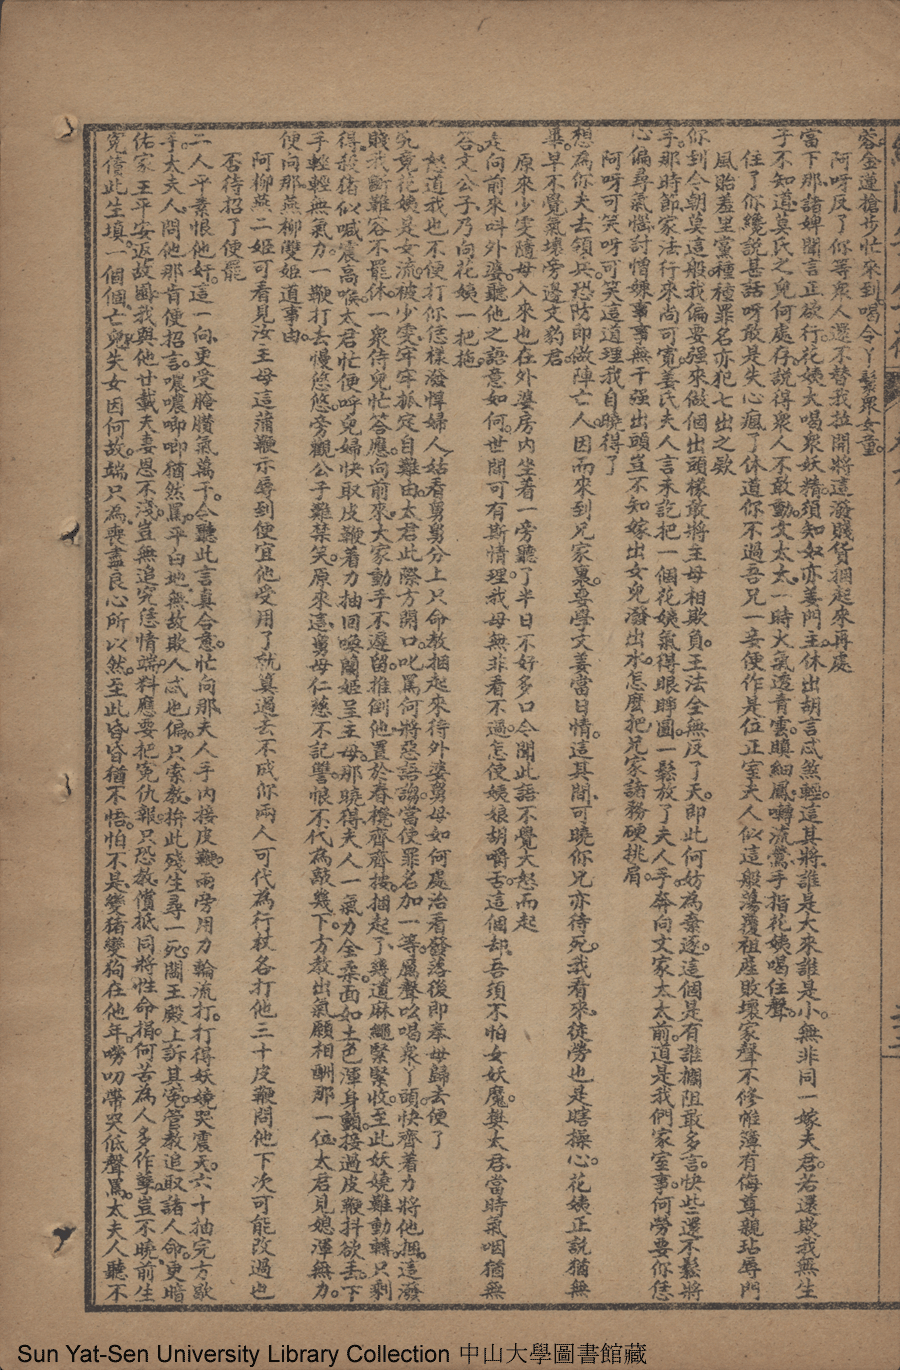 蓉金蓮搶步忙來到。喝令丫鬟衆女童。
阿呀反了你等衆人還不替我拉開將這潑賤貨捆起來再處
當下那諸婢聞言正欲行。花姨大喝衆妖精。須知奴亦姜門主。休出胡言忒煞輕。這其將誰是大來誰是小。無非同一嫁夫君。若還欺我無生
子。不知道莫氏之兒何處存。說得衆人不敢動。文太太一時火氣透青雲。瞋細鳳。囀流鶯。手指花姨喝住聲。
住了你纔說甚話呀敢是失心瘋了休道你不過吾兄一妾便作是位正室夫人似這般蕩覆祖產敗壞家聲不修帷薄有侮尊親玷辱門
風貽羞里黨種種罪名亦犯七出之欵
你到今朝莫這般。我偏要强來做個出頭樣。敢將主母相欺負。王法全無反了天。即此何妨為棄逐。這個是有誰攔阻敢多言。快些還不鬆將
手。那時節家法行來尚可寬。姜氏夫人言未訖。把一個花姨氣得眼睜圓。一鬆放了夫人手。奔向文家太太前。道是我們家室事。何勞要你恁
心偏。尋氣惱。討憎嫌。事事無干强出頭。豈不知嫁出女兒潑出水。怎麼把兄家諸務硬挑肩。
阿呀可笑呀可笑這道理我自曉得了
想為你夫去領兵。恐防即做陣亡人。因而來到兄家裏。要學文姜當日情。這其間可曉你兄亦待死。我看來徒勞也是瞎操心。花姨正說猶無
畢。早不覺氣壞旁邊文豹君。
原來少雯隨母入來也在外婆房內坐着一旁聽了半日不好多口今聞此語不覺大怒而起
走向前來叫外婆。聽他之語意如何。世間可有斯情理。我母無非看不過。怎使姨娘胡嚼舌。這個却吾須不怕女妖魔。樊太君當時氣咽猶無
答。文公子乃向花姨一把拖。
怒道我也不便打你恁樣潑悍婦人姑看舅舅分上只命教捆起來待外婆舅母如何處治看發落後即奉母歸去便了
究竟花姨是女流。被少雯牢牢抓定自難由。太君此際方開口。叱罵何將惡語謅。當使罪名加一等。厲聲吆喝衆丫頭。快齊着力將他捆。這潑
賤我斷難容不罷休。一衆侍兒忙答應。向前來大家動手不遲留。推倒他置於春櫈齊齊按。捆起了幾道麻繩緊緊收。至此妖嬈難動轉。只剩
得殺猪似喊震高喉。太君忙便呼兒婦。快取皮鞭着力抽。回喚蘭姬呈主母。那曉得夫人一氣力全柔。面如土色渾身顫。接過皮鞭抖欲丟。下
手輕輕無氣力。一鞭打去慢悠悠。旁觀公子難禁笑。原來這舅母仁慈不記讐。恨不代為敲幾下。方教出氣願相酬。那一位太君見媳渾無力。
便向那燕柳雙姬道事由。
阿柳燕二姬可看見汝王母這蒲鞭示辱到便宜他受用了就算過去不成你兩人可代為行杖各打他三十皮鞭問他下次可能改過也
否待招了便罷
二人平素恨他奸。這一向更受腌臢氣萬千。今聽此言真合意。忙向那夫人手內接皮鞭。兩旁用力輪流打。打得妖嬈哭震天。六十抽完方歇
手。太夫人問他那肯便招言。噥噥唧唧猶然罵。平白地無故欺人忒也偏。只索教拚此殘生尋一死。閻王殿上訴其寃。管教追取諸人命。更暗
佑家王平安返故園。我與他廿載夫妻恩不淺。豈無追究恁情端。料應要把寃仇報。只恐教償抵同將性命捐。何苦為人多作孽。豈不曉前生
寃債此生填。一個個亡兒失女因何故。端只為喪盡良心所以然。至此昏昏猶不悟。怕不是變猪變狗在他年。嘮叨帶哭低聲罵。太夫人聽不
Sun Yat-Sen University Library Collection 中山大學圖書館藏